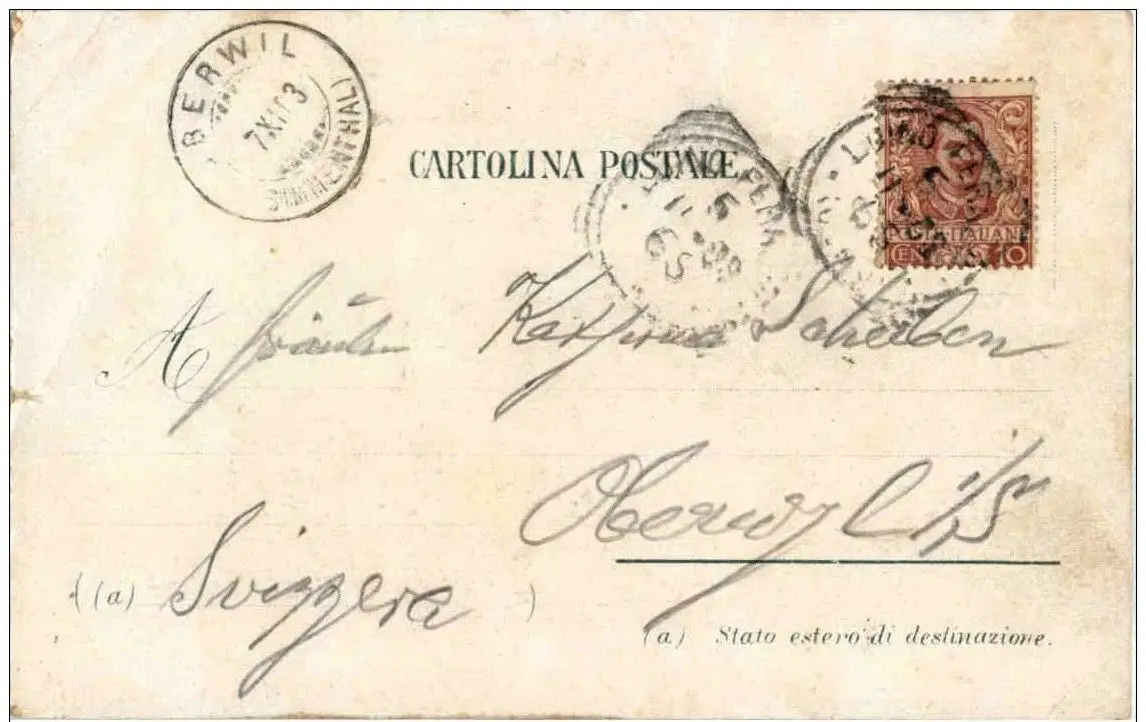 BERWIL
(SIMMENTHAL)
7 XI 03
CARTOLINA POSTALE
POSTE ITALIANE
A Fräulein Scheiben
Oberwyl i/S
(a) Svizzera )
(a) Stato estero di destinazione.